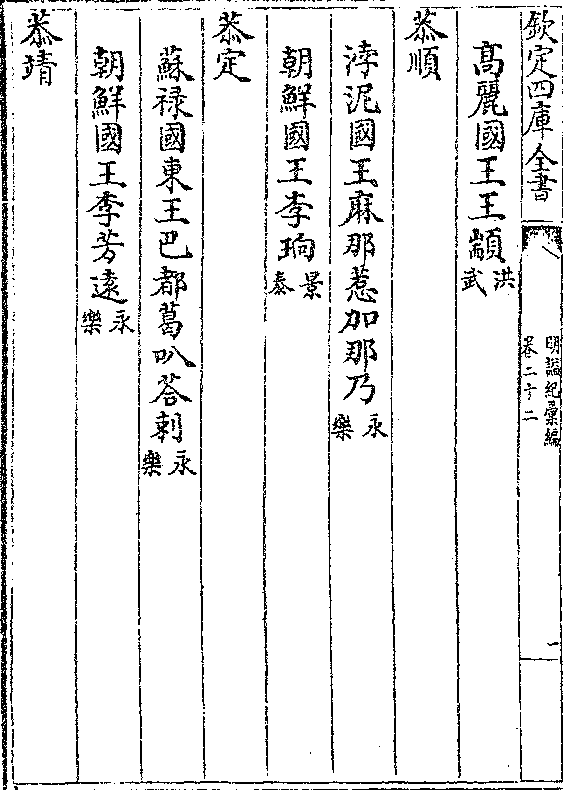 欽定四庫全書
明諡紀彙編
卷二十二
一
髙麗國王王顓洪武
恭順
浡泥國王麻那惹加那乃永樂
朝鮮國王李珦景泰
恭定
蘇禄國東王巴都葛叭荅剌永樂
朝鮮國王李芳遠永樂
恭靖